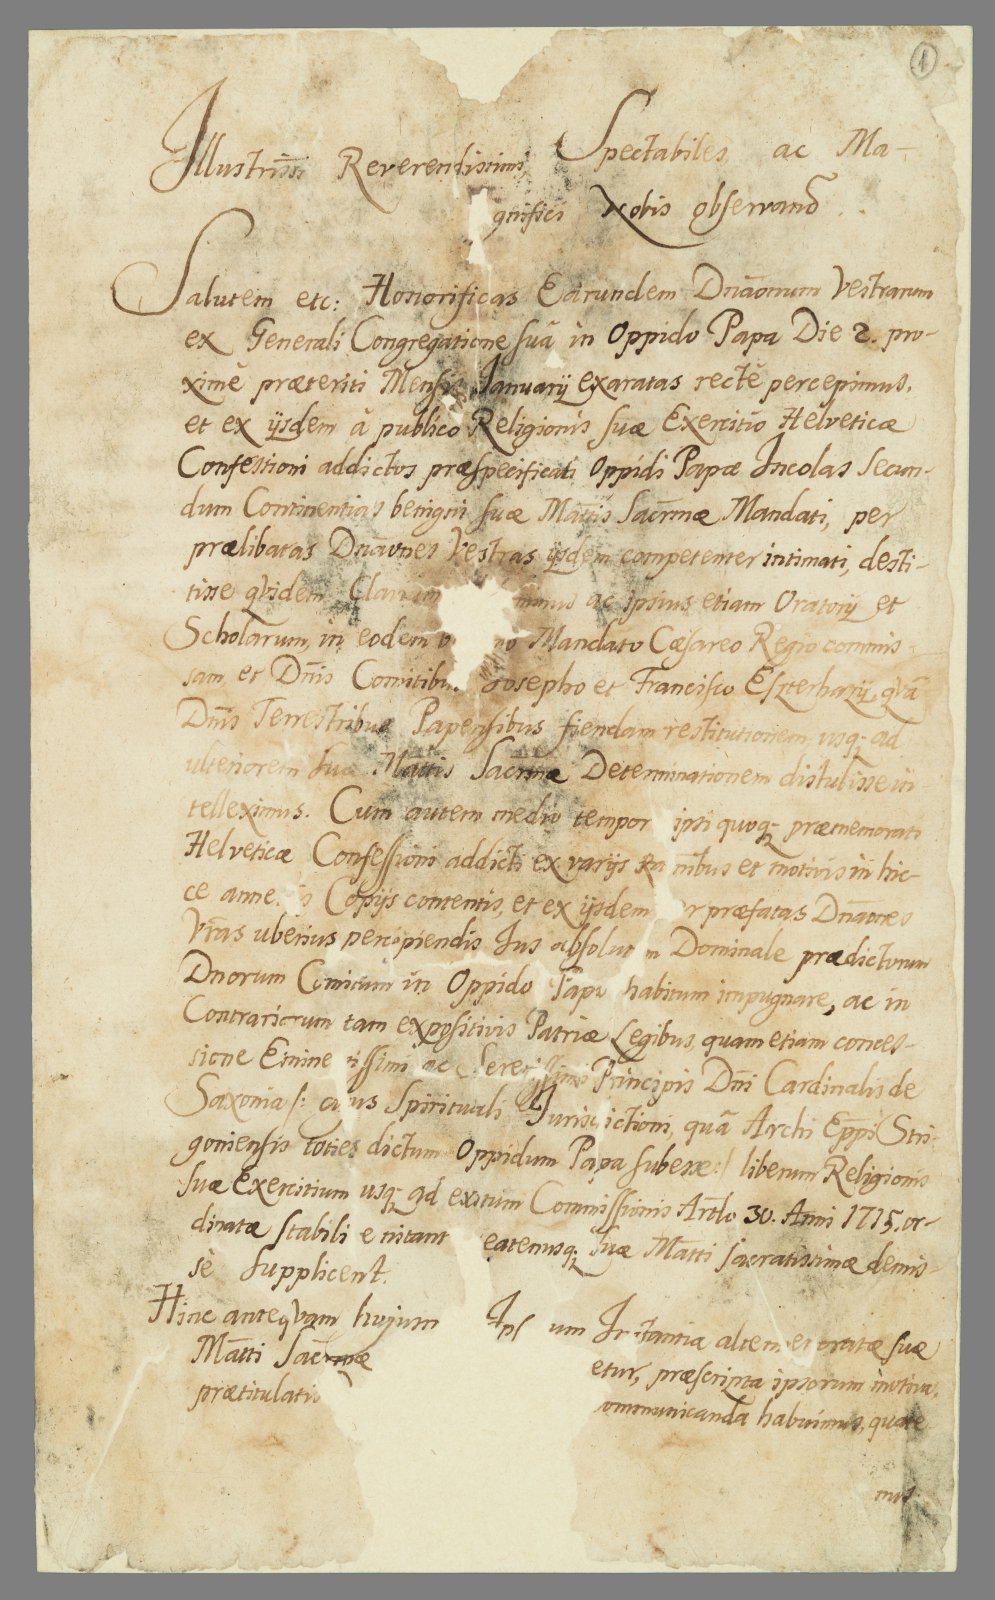 1
Illustrissi Reverendissimi, Spectabiles, ac Ma-
gnifici Nobis observand
Salutem etc: Honorificas Earundem Dnaonum Vestrarum
ex Generali Congregatione suâ in Oppido Papa Die 2. pro-
ximè præteriti Mensis Januarÿ exaratas rectè percepimus,
et ex ÿsdem â publico Religionis suæ Exercitio Helveticæ
Confessioni addictos præspecificati Oppidi Papæ Incolas secun-
dum Continentias benigni suæ Mattis Sacrmæ Mandati, per
prælibatas Dnaones Vestras ÿsdem competenter intimati, desti-
tisse qvidem, ac ipsius etiam Oratorÿ et
Scholarum, in eodem Mandato Cæsareo Regio commis-
sam, et Dnis Comitibus Josepho et Francisco Eszterhazÿ, qvâ
Dnis Terrestribus Papensibus fiendam restitutionem, usq; ad
ulteriorem suæ Mattis Sacrmæ Determinationem distulisse in-
telleximus. Cum autem medio tempor ipsi quoq; præmemorati
Helveticæ Confessioni addicti ex varÿs Ra nibus et motivis in hic-
ce anne is Copÿs contentis, et ex ÿsdem er præfatas Dnaones
Vras uberius percipiendis Jus absolut m Dominale prædictorum
Dnorum Comitum in Oppido Papa habitum impugnare, ac in
Contrarium tam expositivis Patriæ Legibus, quam etiam conces-
sione Emine tissimi ac Serenissimi Principis Dni Cardinalis de
Saxonia /: cujus Spirituali Jurisdictioni, quâ Archi Eppi Stri-
goniensis toties dictum Oppidum Papa subesse :/ liberum Religionis
suæ Exercitium usq; ad exitum Commissionis Artlo 30. Anni 1715. or-
dinatæ stabili e nitant eatenusq; suæ Matti sacratissimæ demis-
sè supplicent.
Hinc anteqvam hujusm Ips um Instantia altem et oratæ suæ
Matti Sacrmæ etur, præscripta ipsorum motiva,
prætitulatis ommunicanda habuimus, quate
nus